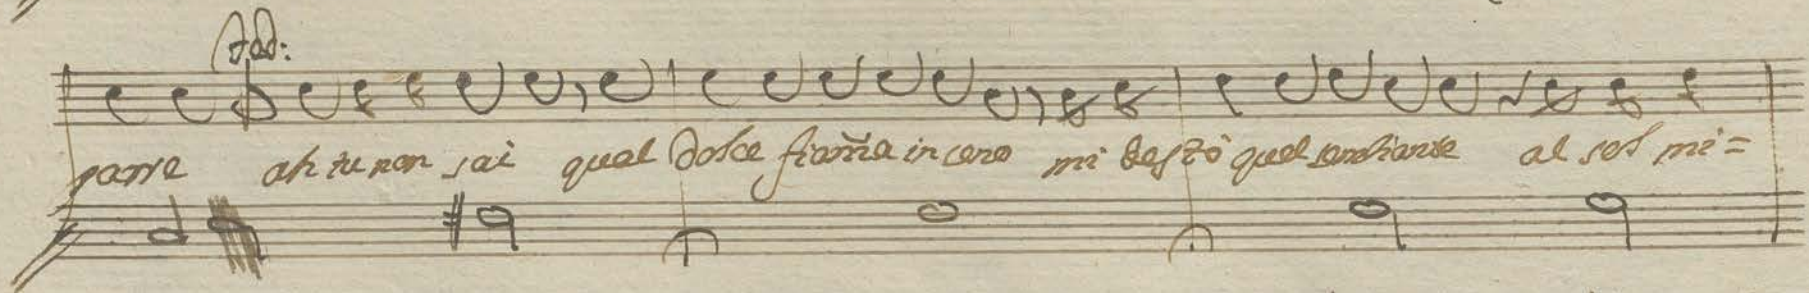 Tad:
parve ah tu non sai qual dolce fiam̃a in seno mi destò quel sembiante al sol mi=